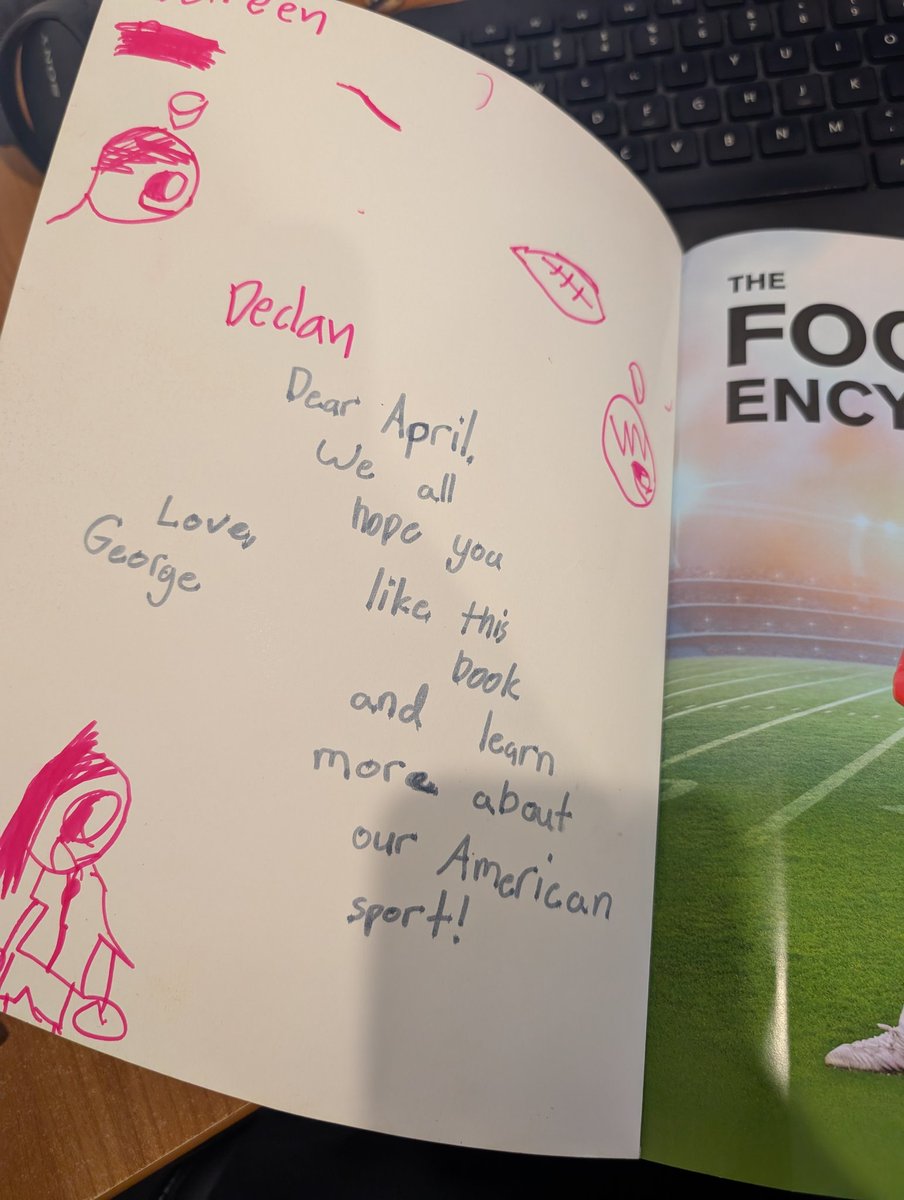 Declan
Dear April,
We all
hope you
like this
book
and learn
more about
our American
sport!
Love,
George
THE
FOO
ENCY
SONY